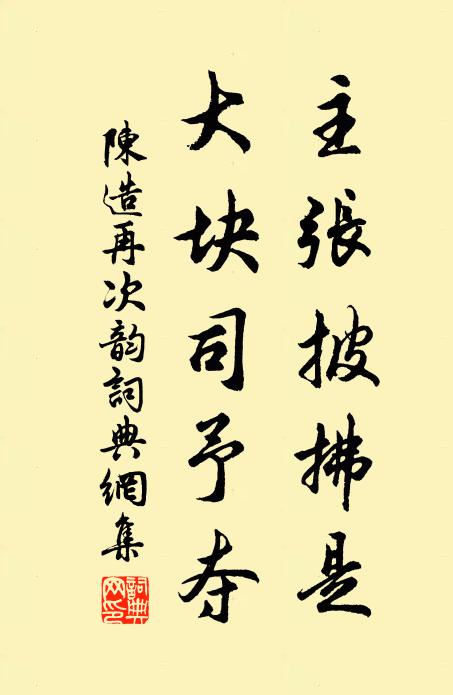 主張披拂是
大块司予夺
陳造再次韵詞典網集
詞典网印